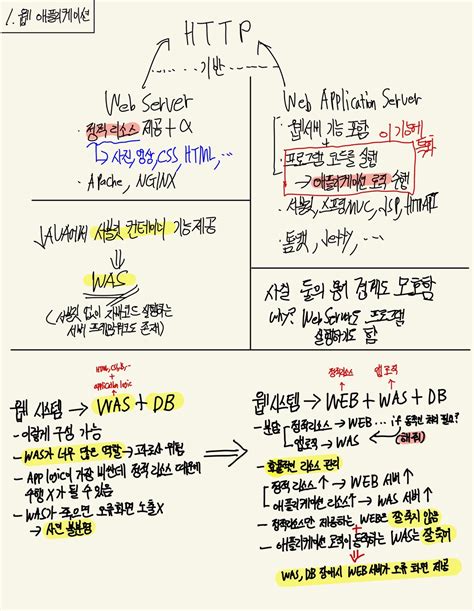 1. 웹 애플리케이션
HTTP
기반
Web Server
· 정적 리소스 제공 + α
↳ 사진, 영상, CSS, HTML, ...
· Apache, NGINX
Web Application Server
· 웹서버 기능 포함
+
이 기능에 특화
· 프로그램 코드를 실행
→ 애플리케이션 로직 수행
· 서블릿, 스프링MVC, JSP, HTTP API
· 톰캣, Jetty, ...
JAVA에서 서블릿 컨테이너 기능제공
⇓
WAS
(서블릿 없이 자바코드 실행하는
서버 프레임워크도 존재)
사실 둘의 용어 경계도 모호함
why? Web Server도 프로그램
실행하기도 함
HTML, CSS, ...
+
application logic
웹 시스템 → WAS + DB
- 이렇게 구성 가능
- WAS가 너무 많은 역할 → 과부하 위험
- App logic이 가장 비싼데 정적 리소스 때문에
수행 X가 될 수 있음
- WAS가 죽으면 오류화면 노출 X
→ 사면
⇒
정적리소스
앱 로직
웹시스템 → WEB + WAS + DB
- 분담
정적리소스 → WEB ... if 동적인 처리 필요?
앱로직 → WAS
- 효율적인 리소스 관리
정적 리소스↑ → WEB 서버↑
애플리케이션 리소스↑ → WAS 서버↑
- 정적리소스만 제공하는 WEB은 잘 죽지 않음
+
- 애플리케이션 로직이 동작하는 WAS는 잘 죽어
⇓
WAS, DB 장애시 WEB 서버가 오류 화면 제공